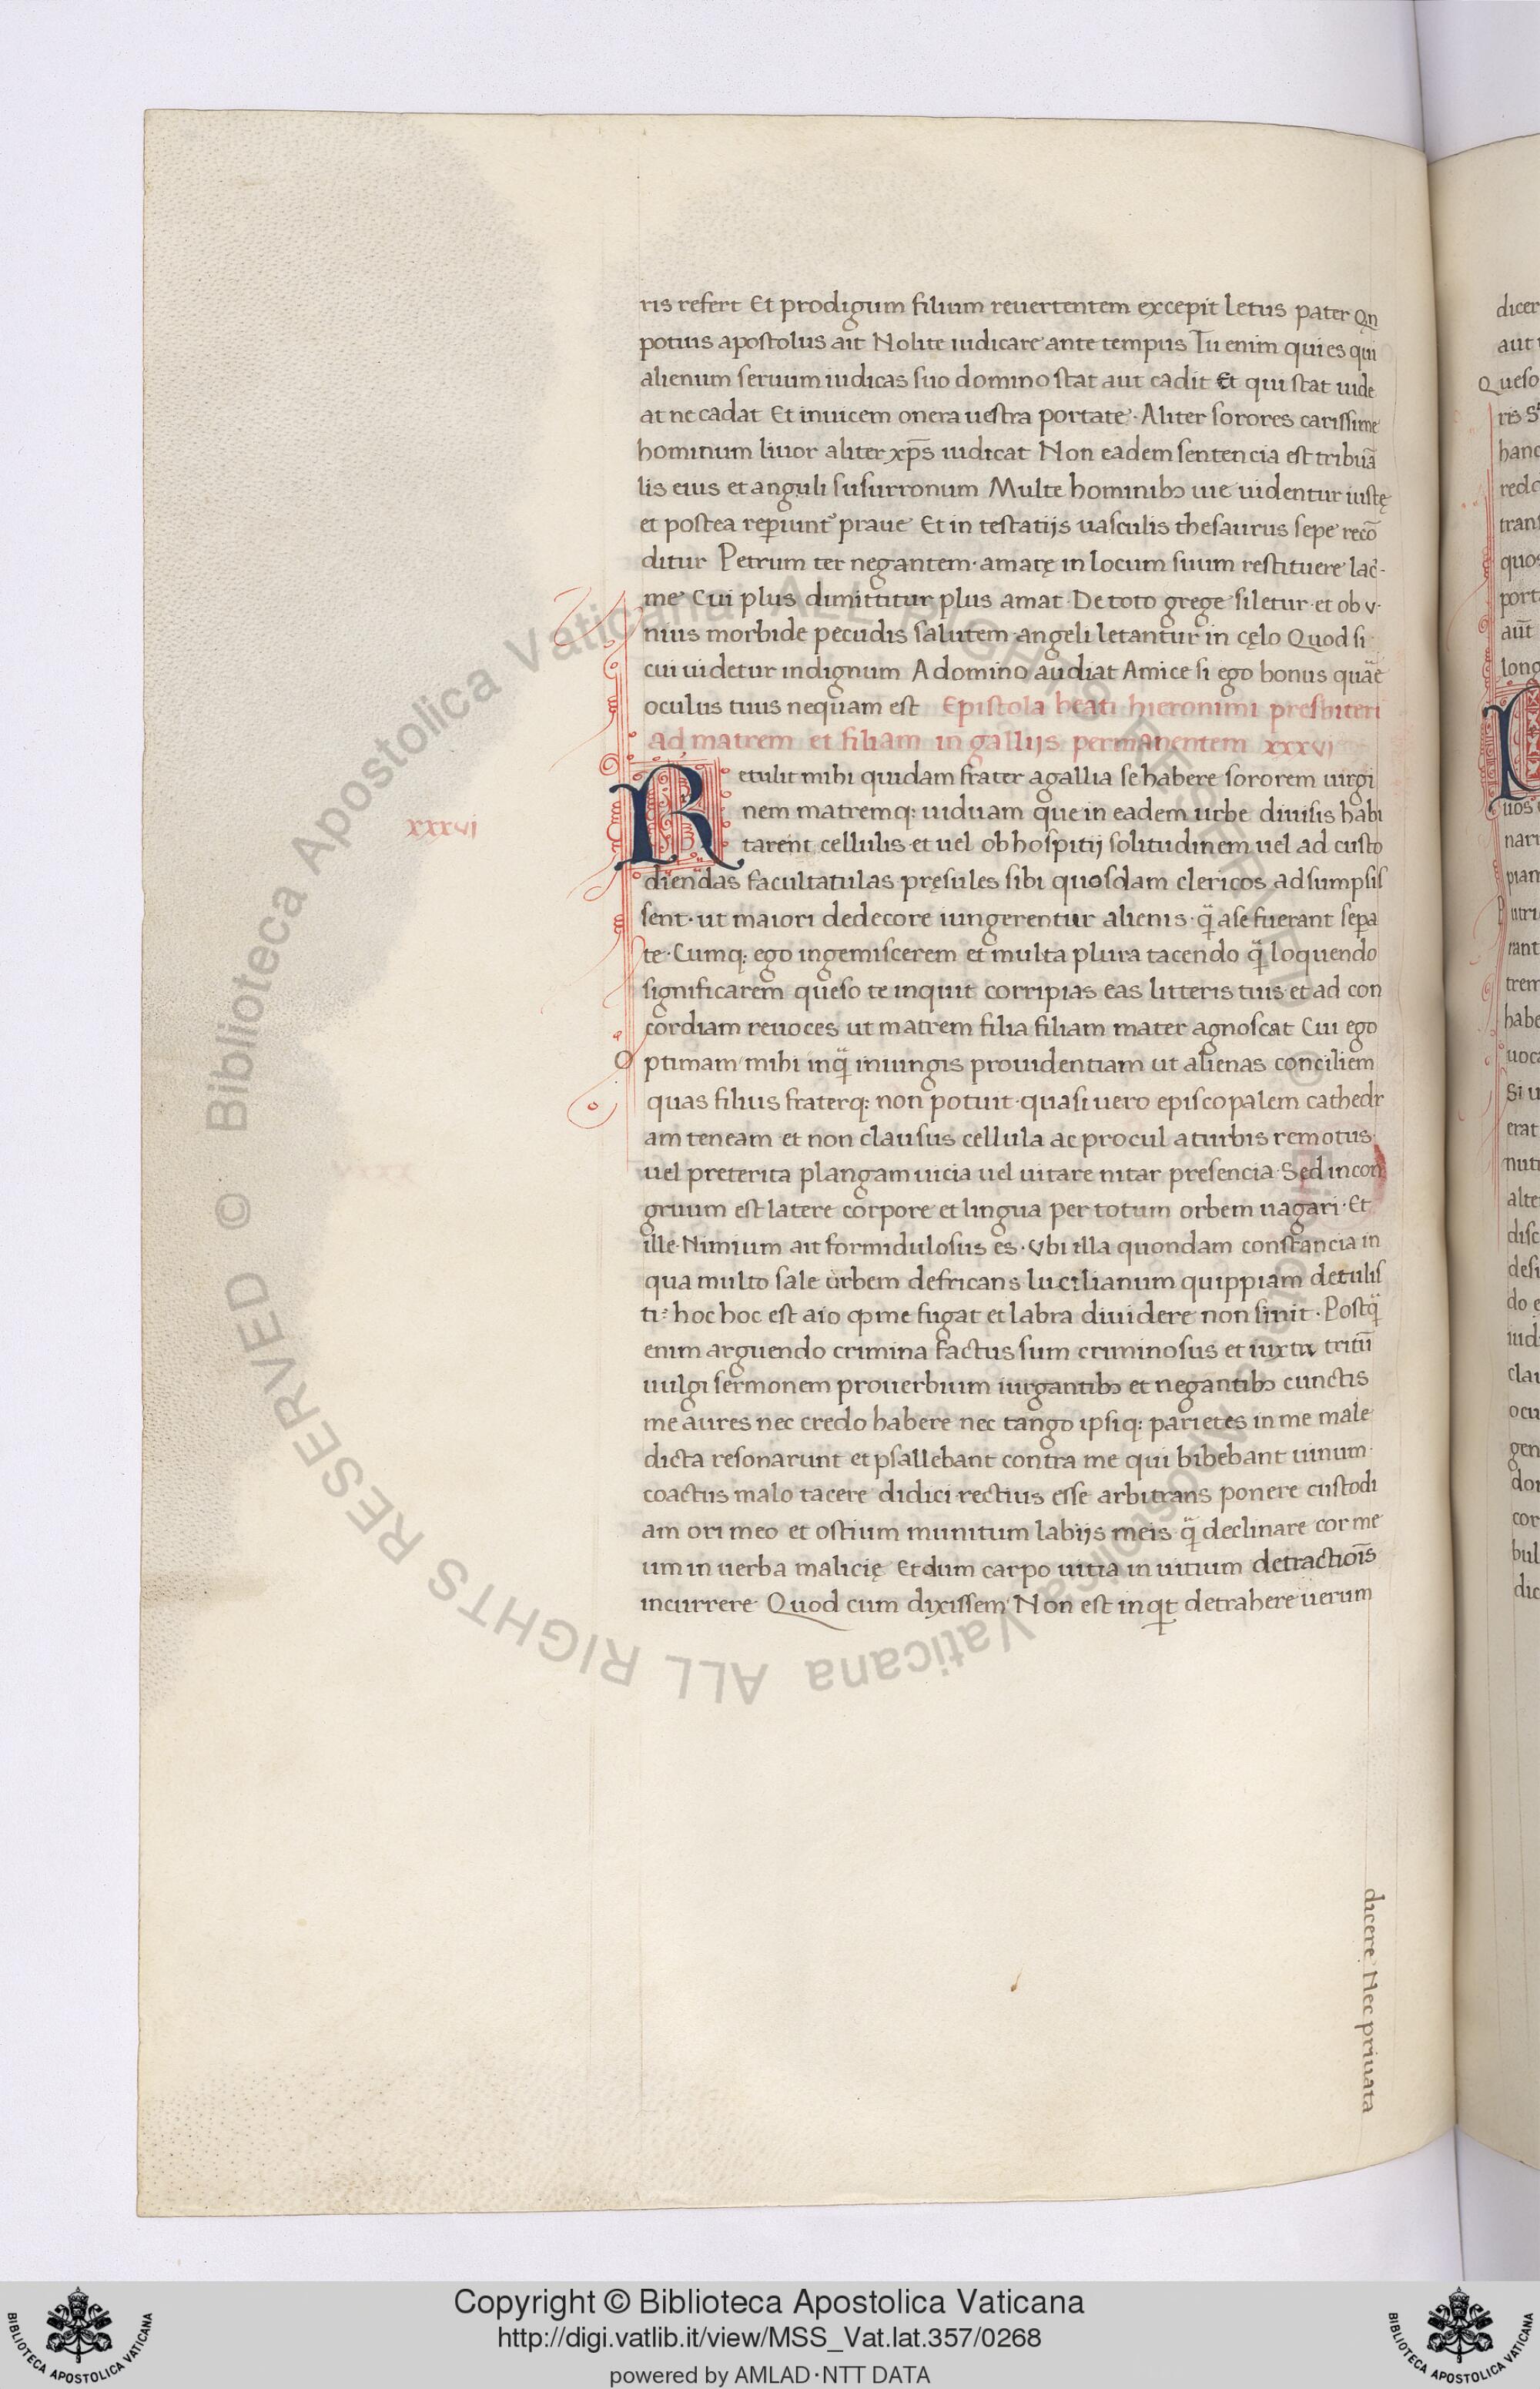 ris refert Et prodigum filium reuertentem excepit letus pater Qn
potius apostolus ait Nolite iudicare ante tempus Tu enim qui es qui
alienum seruum iudicas suo domino stat aut cadit Et qui stat uide
at ne cadat Et inuicem onera uestra portate · Aliter sorores carissime
hominum liuor aliter xp̄s iudicat Non eadem sentencia est tribuā
lis eius et anguli susurronum Multe hominibꝫ uie uidentur iustę
et postea reperiunt᷑ praue Et in testatijs uasculis thesaurus sepe recō
ditur Petrum ter negantem · amarę in locum suum restituere lac̄-
me Cui plus dimittitur plus amat · De toto grege siletur · et ob v-
nius morbide pecudis salutem angeli letantur in cęlo Quod si
cui uidetur indignum A domino audiat Amice si ego bonus quāe
oculus tuus nequam est Epistola beati hieronimi presbiteri
ad matrem et filiam in gallijs permanentem xxxvj
Retulit mihi quidam frater a gallia se habere sororem uirgi
nem matremq: uiduam que in eadem urbe diuisis habi
tarent cellulis · et uel ob hospitij solitudinem uel ad custo
diendas facultatulas pręsules sibi quosdam clericos adsumpsis
sent · ut maiori dedecore iungerentur alienis · q̈ a se fuerant sepa
te · Cumq: ego ingemiscerem et multa plura tacendo q̈ loquendo
significarem queso te inquit corripias eas litteris tuis et ad con
cordiam reuoces ut matrem filia filiam mater agnoscat Cui ego
Optimam mihi inq̈ iniungis prouidentiam ut alienas conciliem
quas filius fraterq: non potuit · quasi uero episcopalem cathedr
am teneam et non clausus cellula ac procul a turbis remotus
uel preterita plangam uicia uel uitare nitar presencia · Sed incon
gruum est latere corpore et lingua per totum orbem uagari · Et
ille · Nimium ait formidulosus es · Vbi illa quondam constancia in
qua multo sale urbem defricans lucilianum quippiam detulis
ti: hoc hoc est aio ꝙ me fugat et labra diuidere non sinit · Postq̈
enim arguendo crimina factus sum criminosus et iuxta tritū
uulgi sermonem prouerbium iurgantibꝫ et negantibꝫ cunctis
me aures nec credo habere nec tango ipsiq: parietes in me male
dicta resonarunt et psallebant contra me qui bibebant uinum ·
coactus malo tacere didici rectius esse arbitrans ponere custodi
am ori meo et ostium munitum labijs meis q̈ declinare cor me
um in uerba malicię Et dum carpo uitia in uitium detractiōis
incurrere Quod cum dixissem Non est inqt detrahere uerum
dicere Nec priuata
xxxvj
dicer
aut
Queso
ris S
hanc
redo
tran
quos
port
aūt
long
uos
nari
piam
utri
rant
trem
habe
uoca
Si u
erat
nuti
alte
disc
desi
do e
iud
clau
ocu
gen
don
cor
bul
dic
© Biblioteca Apostolica Vaticana ALL RIGHTS RESERVED
© Biblioteca Apostolica Vaticana ALL RIGHTS RESERVED
BIBLIOTECA APOSTOLICA VATICANA
Copyright © Biblioteca Apostolica Vaticana
http://digi.vatlib.it/view/MSS_Vat.lat.357/0268
powered by AMLAD·NTT DATA
BIBLIOTECA APOSTOLICA VATICANA